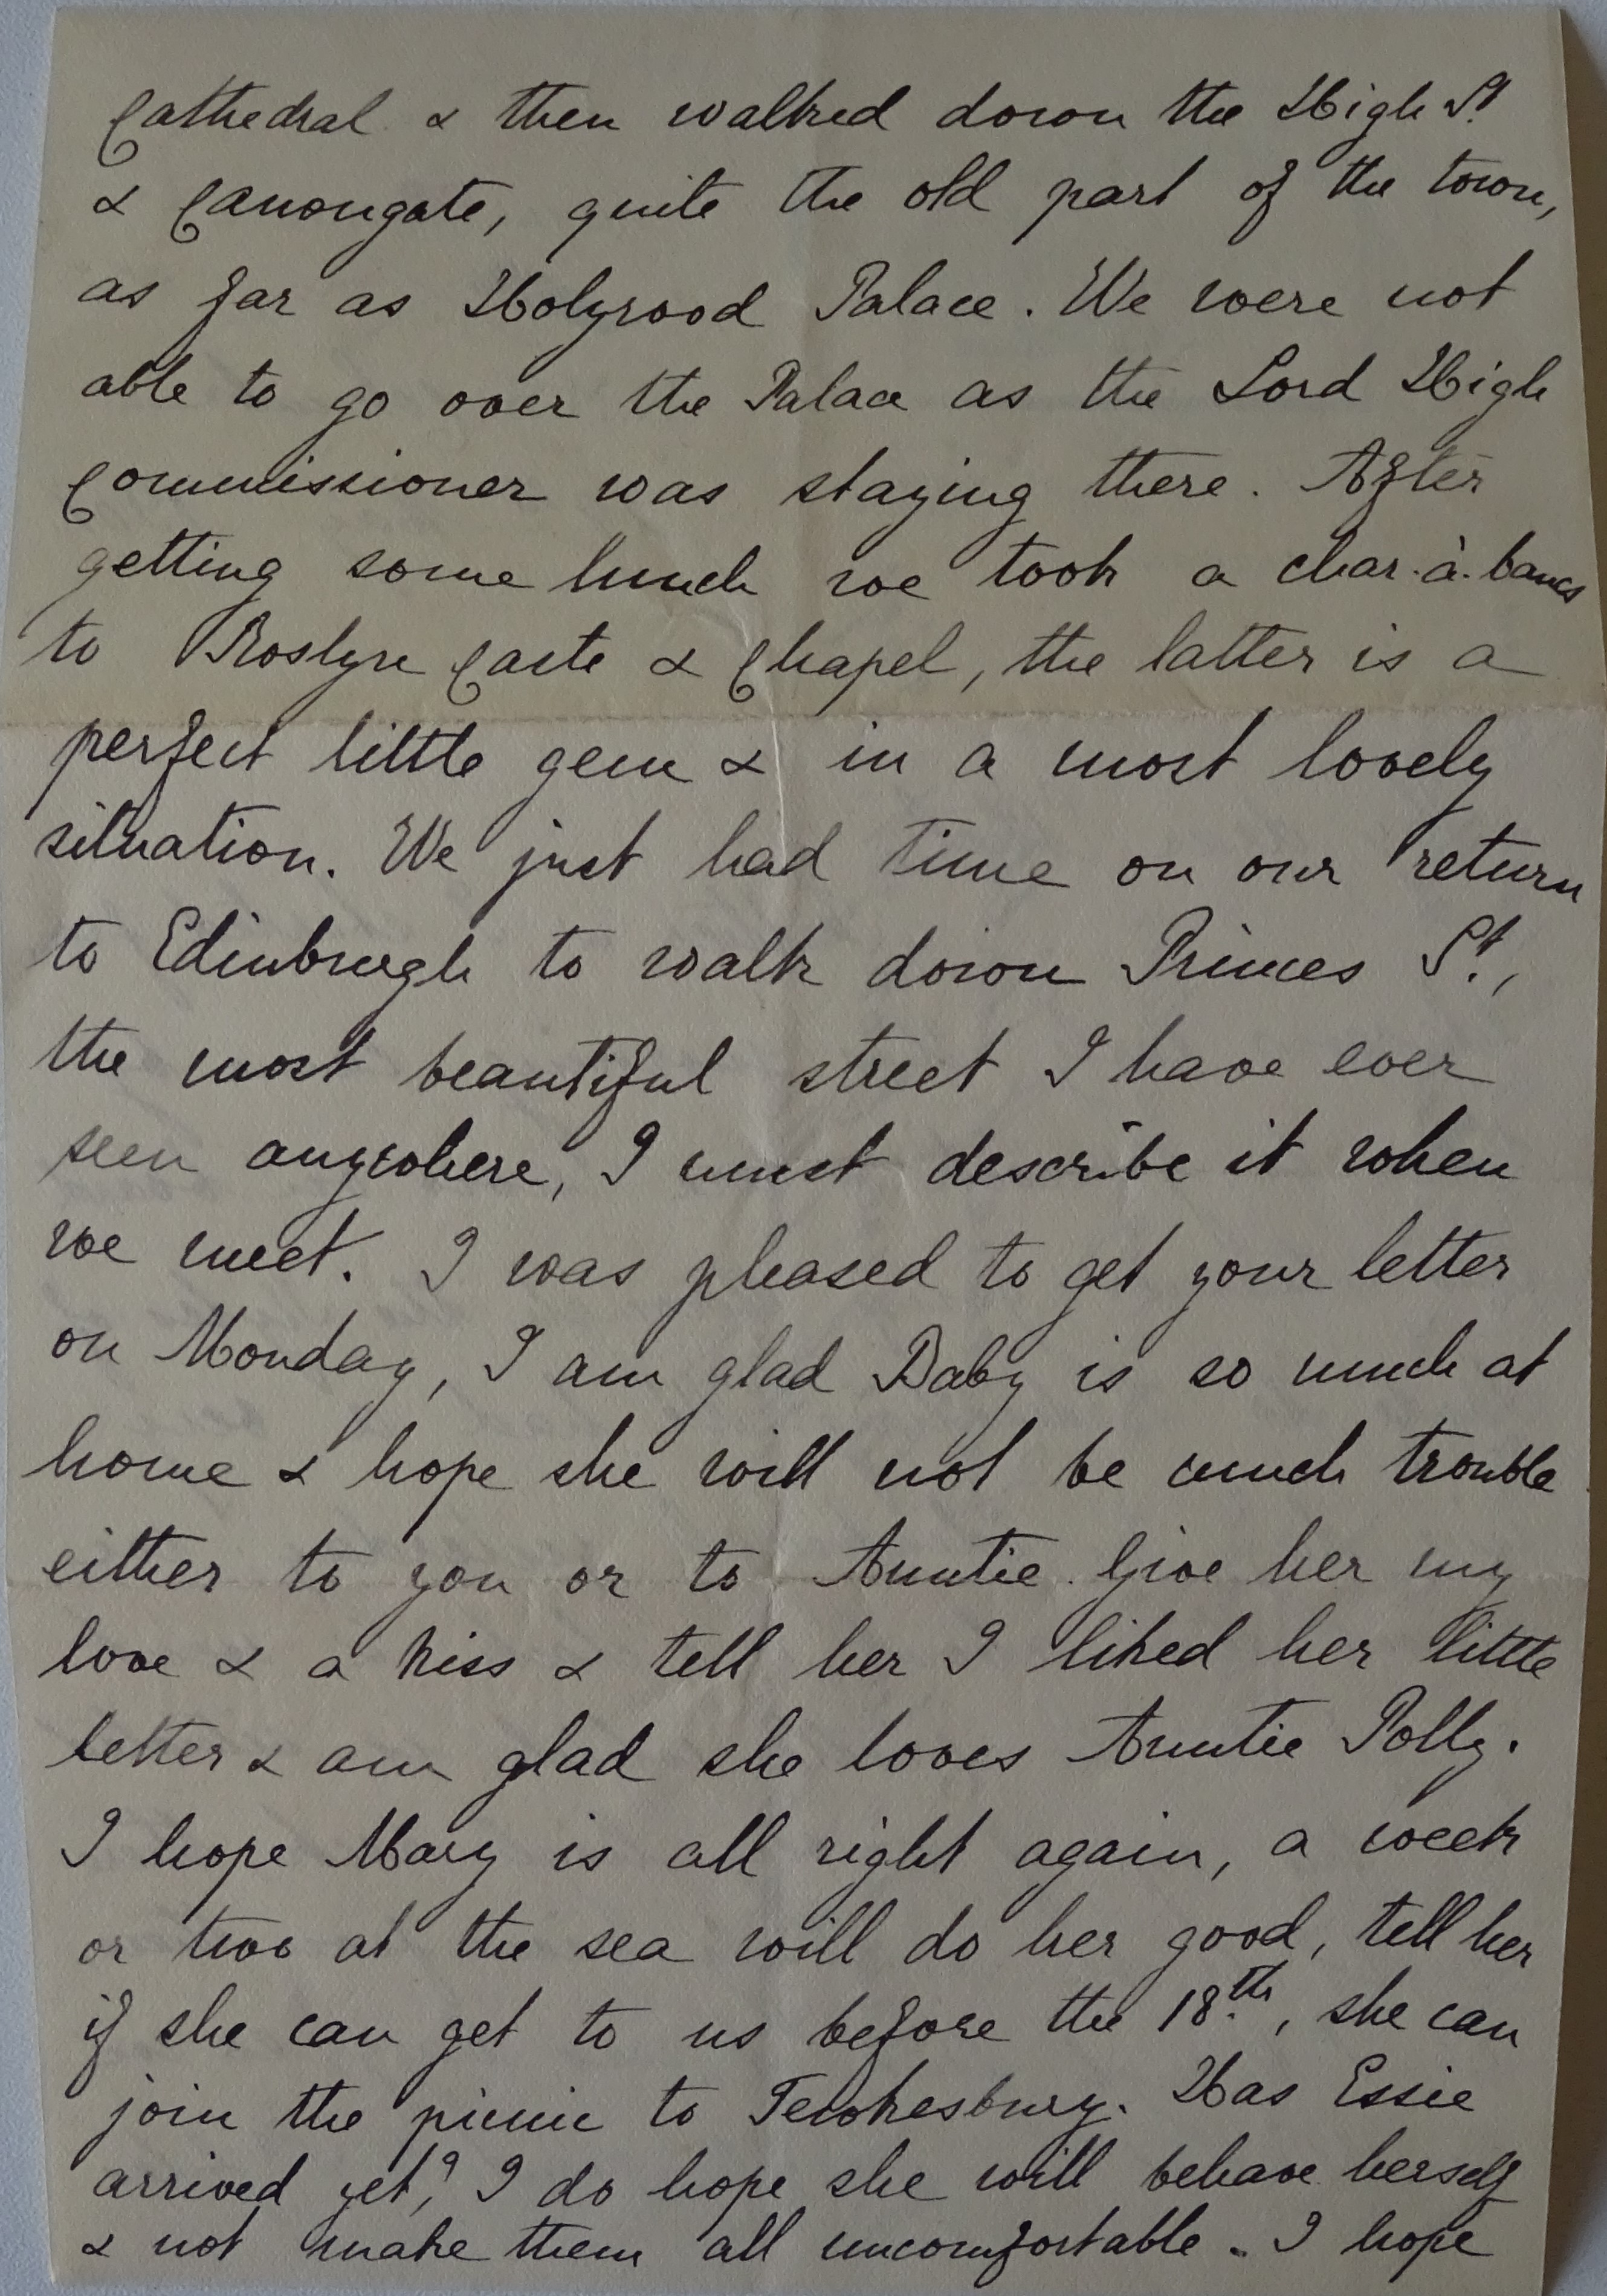 Cathedral & then walked down the High St.
& Canongate, quite the old part of the town,
as far as Holyrood Palace. We were not
able to go over the Palace as the Lord High
Commissioner was staying there. After
getting some lunch we took a char-à-bancs
to Roslyn Caste & Chapel, the latter is a
perfect little gem & in a most lovely
situation. We just had time on our return
to Edinburgh to walk down Princes St.,
the most beautiful street I have ever
seen anywhere, I must describe it when
we meet. I was pleased to get your letter
on Monday, I am glad Baby is so much at
home & hope she will not be much trouble
either to you or to Auntie. Give her my
love & a kiss & tell her I liked her little
letter & am glad she loves Auntie Polly.
I hope Mary is all right again, a week
or two at the sea will do her good, tell her
if she can get to us before the 18th, she can
join the picnic to Tewkesbury. Has Essie
arrived yet? I do hope she will behave herself
& not make them all uncomfortable. I hope